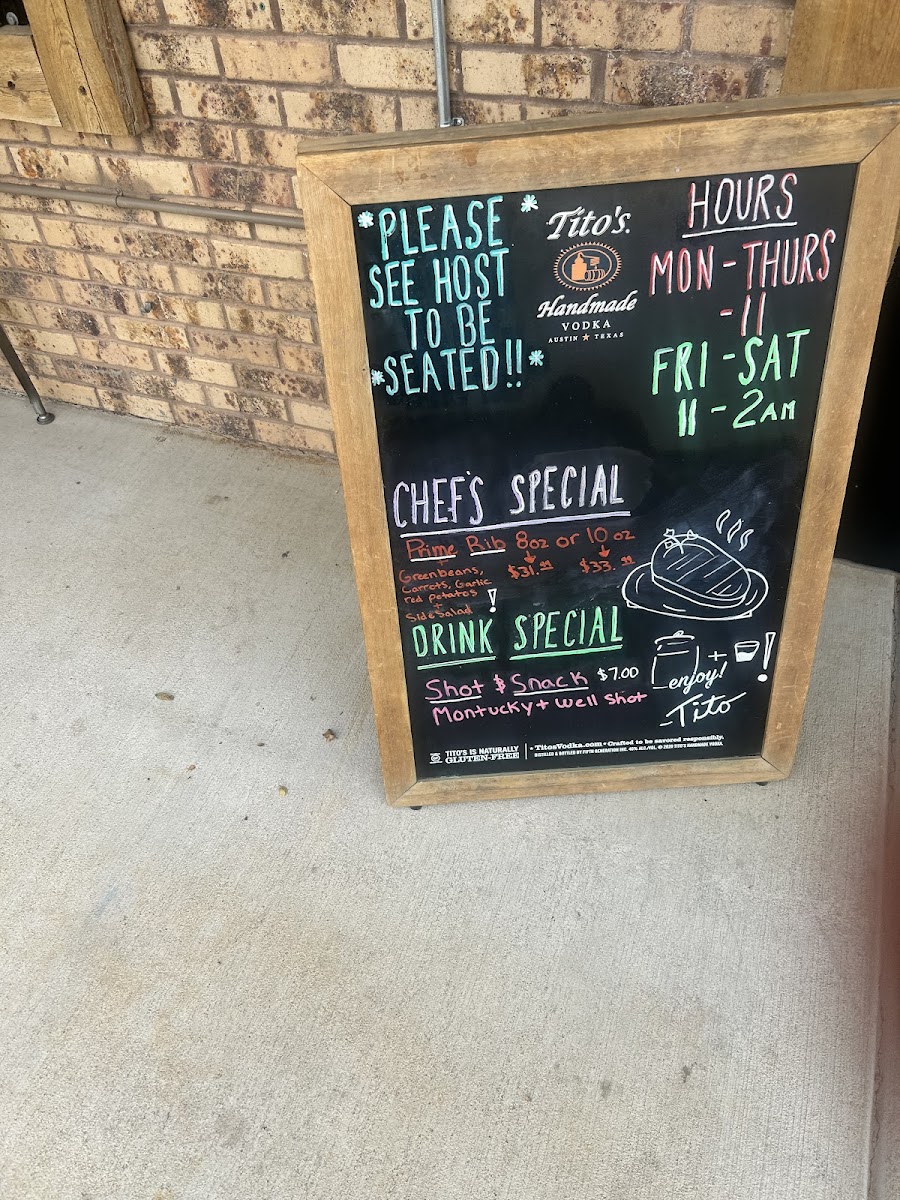 *PLEASE*
SEE HOST
TO BE
*SEATED!!*
Tito's.
Handmade
VODKA
AUSTIN ★ TEXAS
HOURS
MON-THURS
-11
FRI-SAT
11-2AM
CHEF'S SPECIAL
Prime Rib 8oz or 10oz
$31.99 $33.99
Greenbeans,
Carrots, Garlic
red potatos
+
Side Salad
!
DRINK SPECIAL
Shot & Snack $7.00
Montucky + Well Shot
+ !
enjoy!
-Tito
TITO'S IS NATURALLY
GLUTEN-FREE
• TitosVodka.com • Crafted to be savored responsibly.
DISTILLED & BOTTLED BY FIFTH GENERATION INC. 40% ALC./VOL. © 2020 TITO'S HANDMADE VODKA.